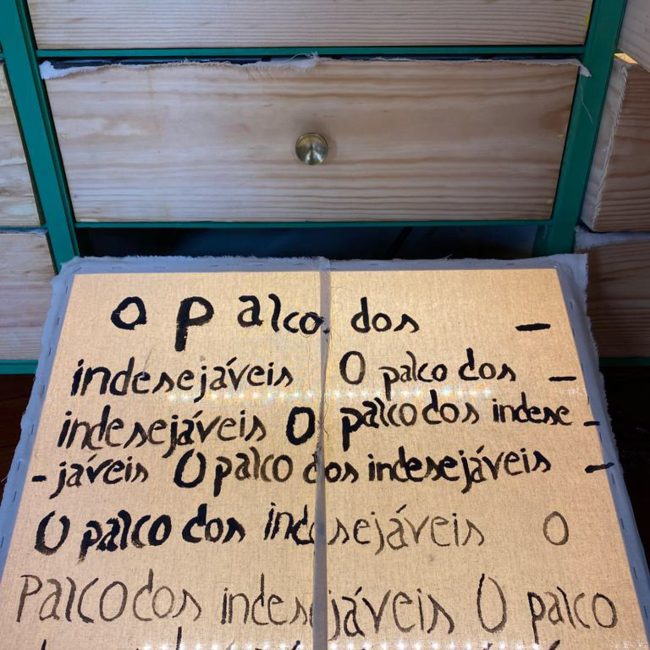 O Palco dos –
indesejáveis O palco dos –
indesejáveis O palco dos indese–
–jáveis O palco dos indesejáveis –
O palco dos indesejáveis O
palco dos indesejáveis O palco